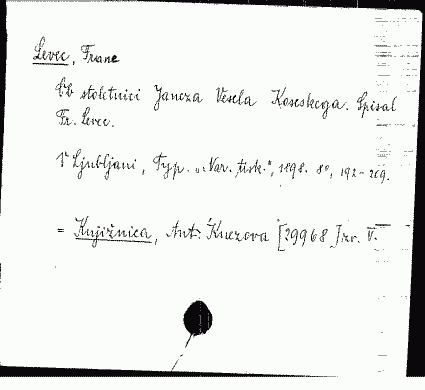 Levec, Franc
Ob stoletnici Janeza Vesela Koseskega. Spisal
Fr. Levec.
V Ljubljani, Typ. „Nar. tisk.", 1898. 8°, 192-209.
= Knjižnica, Ant. Knezova [29968] zv. V.